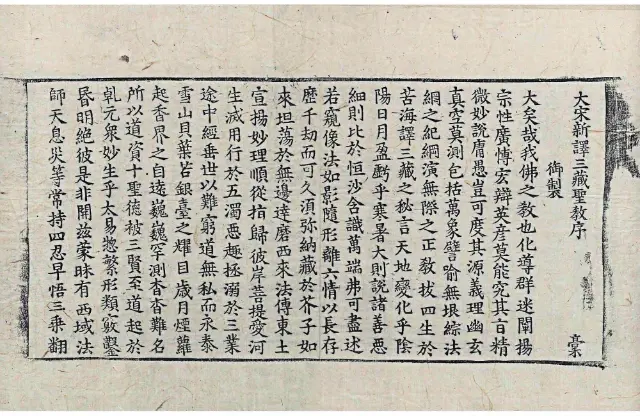 大宋新譯三藏聖教序
御製
稾
大矣哉我佛之教也化導群迷闡揚
宗性廣博宏辯英彥莫能究其旨精
微妙說庸愚豈可度其源義理幽玄
真空莫測包括萬象譬喻無垠綜法
綱之紀綱演無際之正教拔四生於
苦海譯三藏之秘言天地變化乎陰
陽日月盈虧乎寒暑大則說諸善惡
細則比於恒沙含識萬端弗可盡述
若窺像法如影隨形離六情以長存
歷千劫而可久須弥納藏於芥子如
來坦蕩於無邊達磨西來法傳東土
宣揚妙理順從指歸彼岸菩提愛河
生滅用行於五濁惡趣拯溺於三業
途中經垂世以難窮道無私而永泰
雪山貝葉若銀臺之耀目歲月煙蘿
起香界之自遠巍巍罕測杳杳難名
所以道資十聖德被三賢至道起於
乹元眾妙生乎太易惣繁形類竅鑿
昬明絕彼是非開兹蒙昧有西域法
師天息災等常持四忍早悟三乘翻